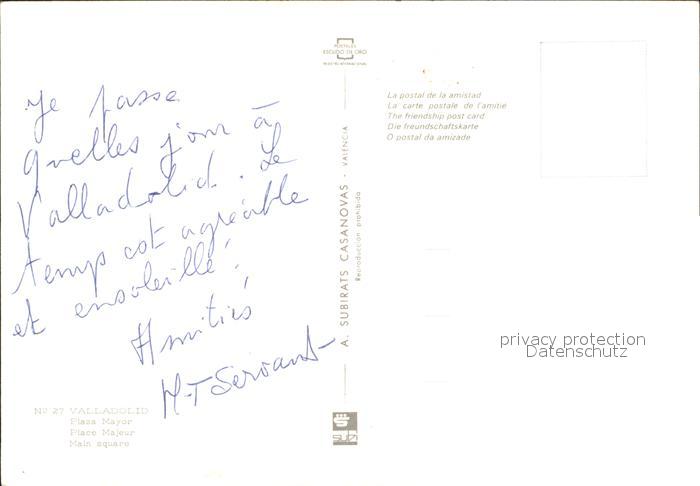 Je passe
quelles jour à
Valladolid. Le
temps est agréable
et ensoleillé!
Amitiés
M-T Servant
Nº 27 VALLADOLID
Plaza Mayor
Place Majeur
Main square
POSTALES
ESCUDO DE ORO
A. SUBIRATS CASANOVAS - VALENCIA
Reproducción prohibida
subi
La postal de la amistad
La carte postale de l'amitie
The friendship post card
Die freundschaftskarte
O postal da amizade
privacy protection
Datenschutz